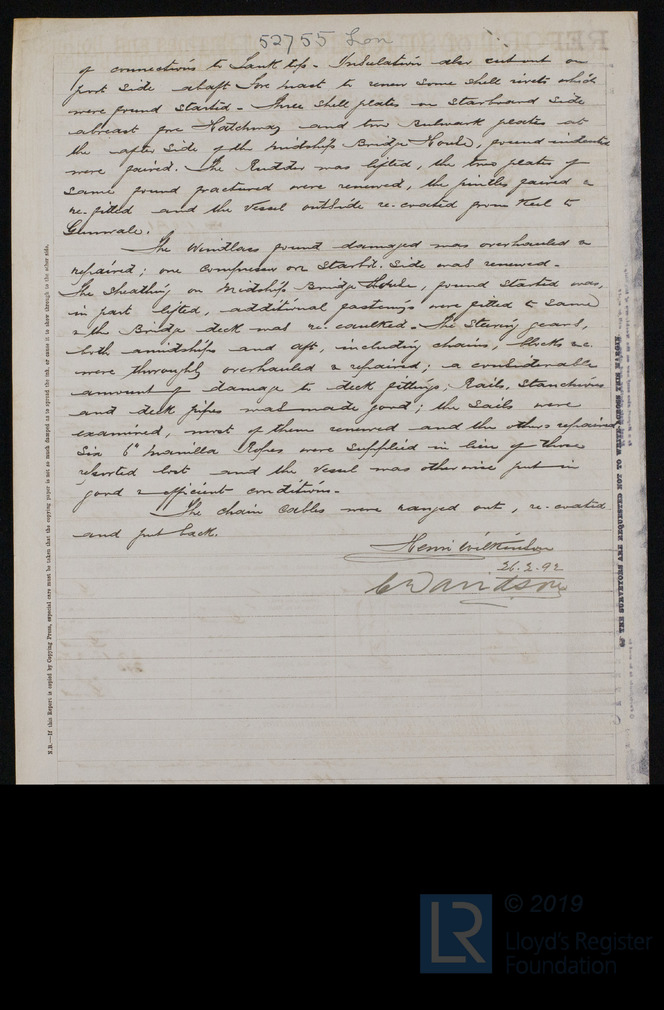 52755 Lon
of connections to Tank top. Insulation also cut out on
port side abaft Fore mast to renew some shell rivets which
were found started. Three shell plates on Starboard side
abreast fore Hatchway and two bulwark plates at
the after side of the midship Bridge House, found indented
were faired. The Rudder was lifted, the two plates of
same found fractured were renewed, the pintles faired &
re-fitted and the vessel outside re-coated from Keel to
Gunwale.
The Windlass found damaged was overhauled &
repaired; one compressor on Starbd. side was renewed.
The sheathing on midship Bridge House, found started was,
in part lifted, additional fastenings were fitted to same
& the Bridge deck was re-caulked. The steering gears,
both amidships and aft, including chains, blocks &c.
were throughly overhauled & repaired; a considerable
amount of damage to deck fittings, Rails, Stanchions
and deck pipes was made good; the sails were
examined, most of them renewed and the others repaired
Six 6" Manilla Ropes were supplied in lieu of those
reported lost and the vessel was otherwise put in
good & efficient condition.
The chain cables were ranged out, re-coated
and put back.
Henri Wilkinson
26.2.92
C Davidson
N.B.—If this Report is copied by Copying Press, especial care must be taken that the copying paper is not so much damped as to spread the ink, or cause it to show through to the other side.
THE SURVEYORS ARE REQUESTED NOT TO WRITE ACROSS THIS MARGIN
LR
© 2019
Lloyd's Register
Foundation